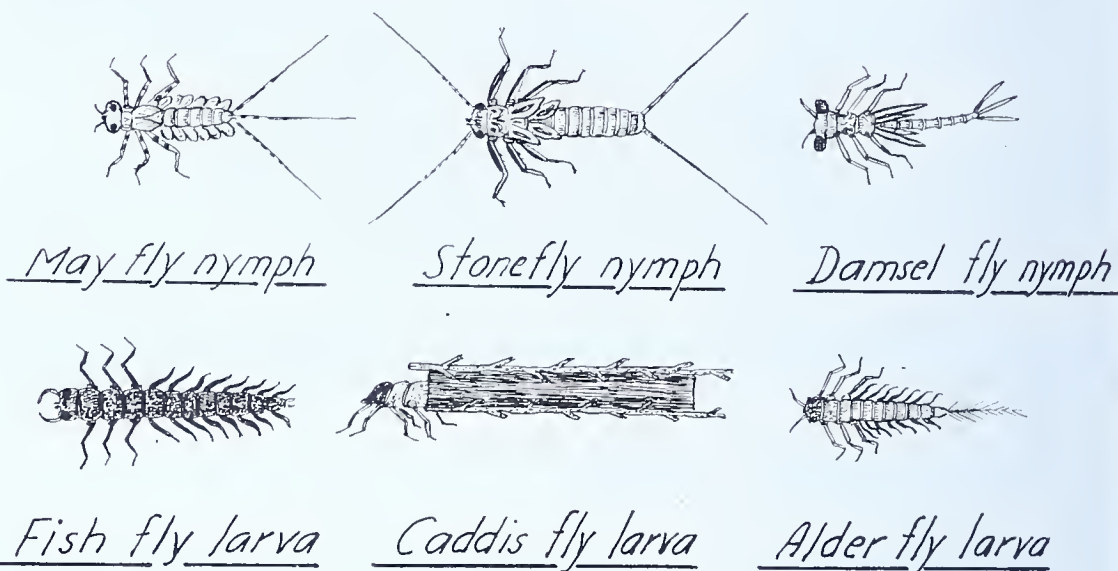 May fly nymph
Stonefly nymph
Damsel fly nymph
Fish fly larva
Caddis fly larva
Alder fly larva